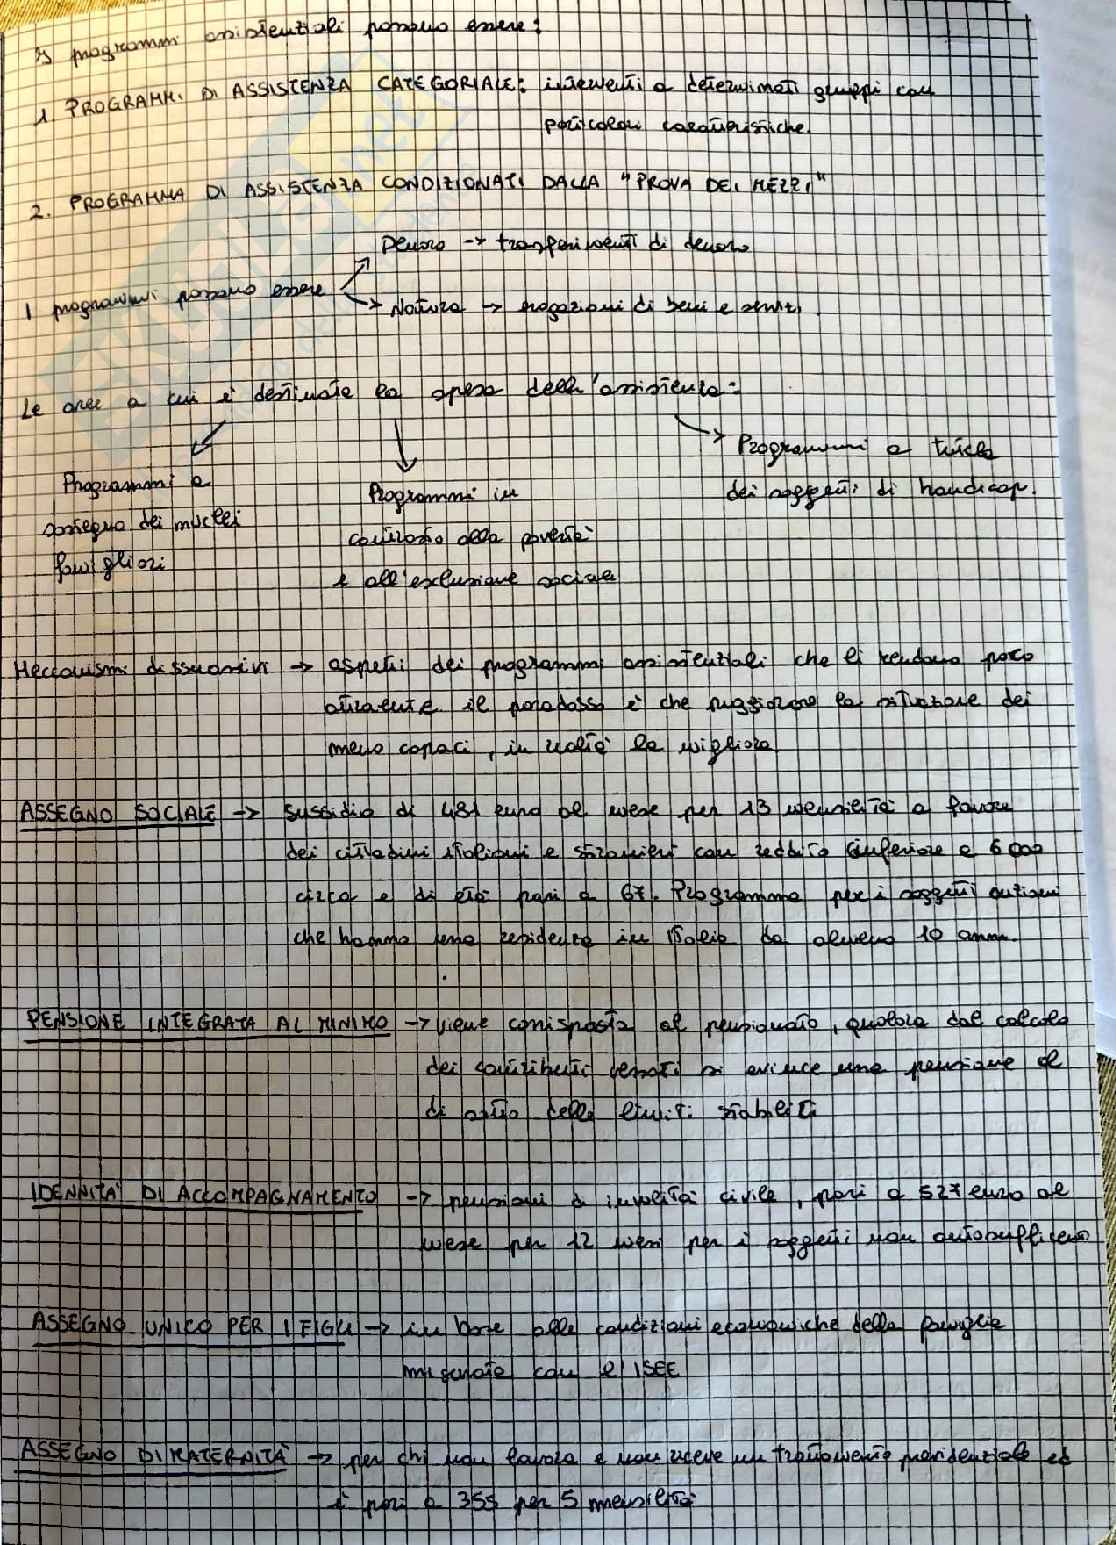 I programmi assistenziali possono essere:
1. PROGRAMM. DI ASSISTENZA CATEGORIALE: interventi a determinati gruppi con
particolari caratteristiche.
2. PROGRAMMA DI ASSISTENZA CONDIZIONATI DALLA "PROVA DEI MEZZI"
Denaro → trasferimenti di denaro
I programmi possono essere
Natura → erogazioni di beni e servizi.
Le aree a cui è destinata la spesa dell'assistenza:
Programmi a
sostegno dei nuclei
famigliari
Programmi in
contrasto della povertà
e all'esclusione sociale
Programmi a tutela
dei soggetti di handicap.
Meccanismi dissuasivi → aspetti dei programmi assistenziali che li rendono poco
attraenti il paradosso è che peggiorano la situazione dei
meno capaci, in realtà la migliora
ASSEGNO SOCIALE → sussidio di 481 euro al mese per 13 mensilità a favore
dei cittadini italiani e stranieri con reddito inferiore a 6000
circa e di età pari a 67. Programma per i soggetti anziani
che hanno una residenza in Italia da almeno 10 anni.
PENSIONE INTEGRATA AL MINIMO → viene corrisposta al pensionato, qualora dal calcolo
dei contributi versati si evince una pensione al
di sotto della limiti stabiliti
IDENNITA' DI ACCOMPAGNAMENTO → pensioni d invalità civile, pari a 527 euro al
mese per 12 mesi per i soggetti non autosufficienti
ASSEGNO UNICO PER I FIGLI → in base alle condizioni economiche della famiglia
misurate con l'ISEE
ASSEGNO DI MATERNITÀ → per chi non lavora e non riceve un trattamento previdenziale ed
è pari a 355 per 5 mensilità